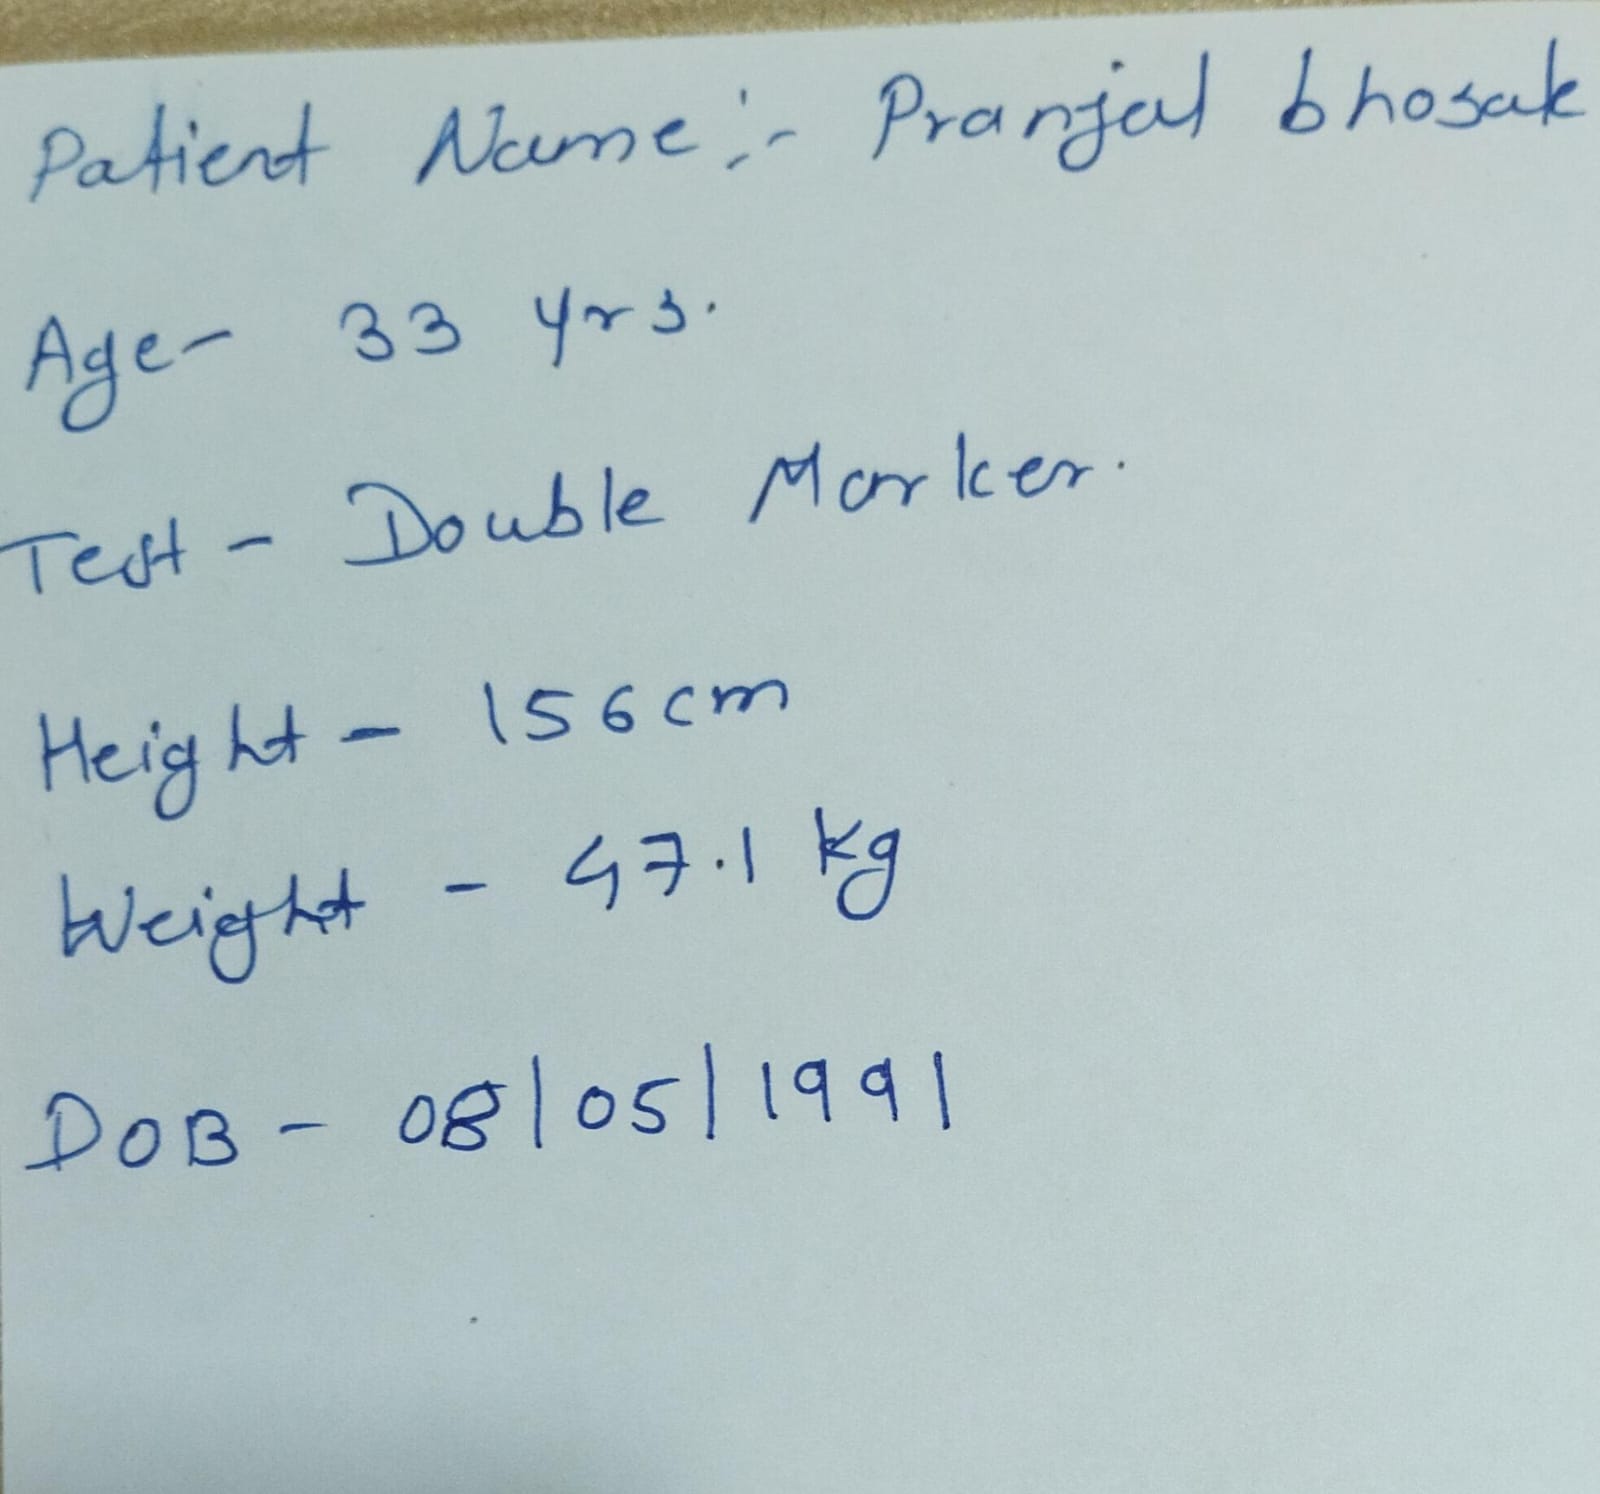 Patient Name :- Pranjal bhosale
Age - 33 yrs.
Test - Double Marker.
Height - 156 cm
Weight - 47.1 kg
DOB - 08/05/1991